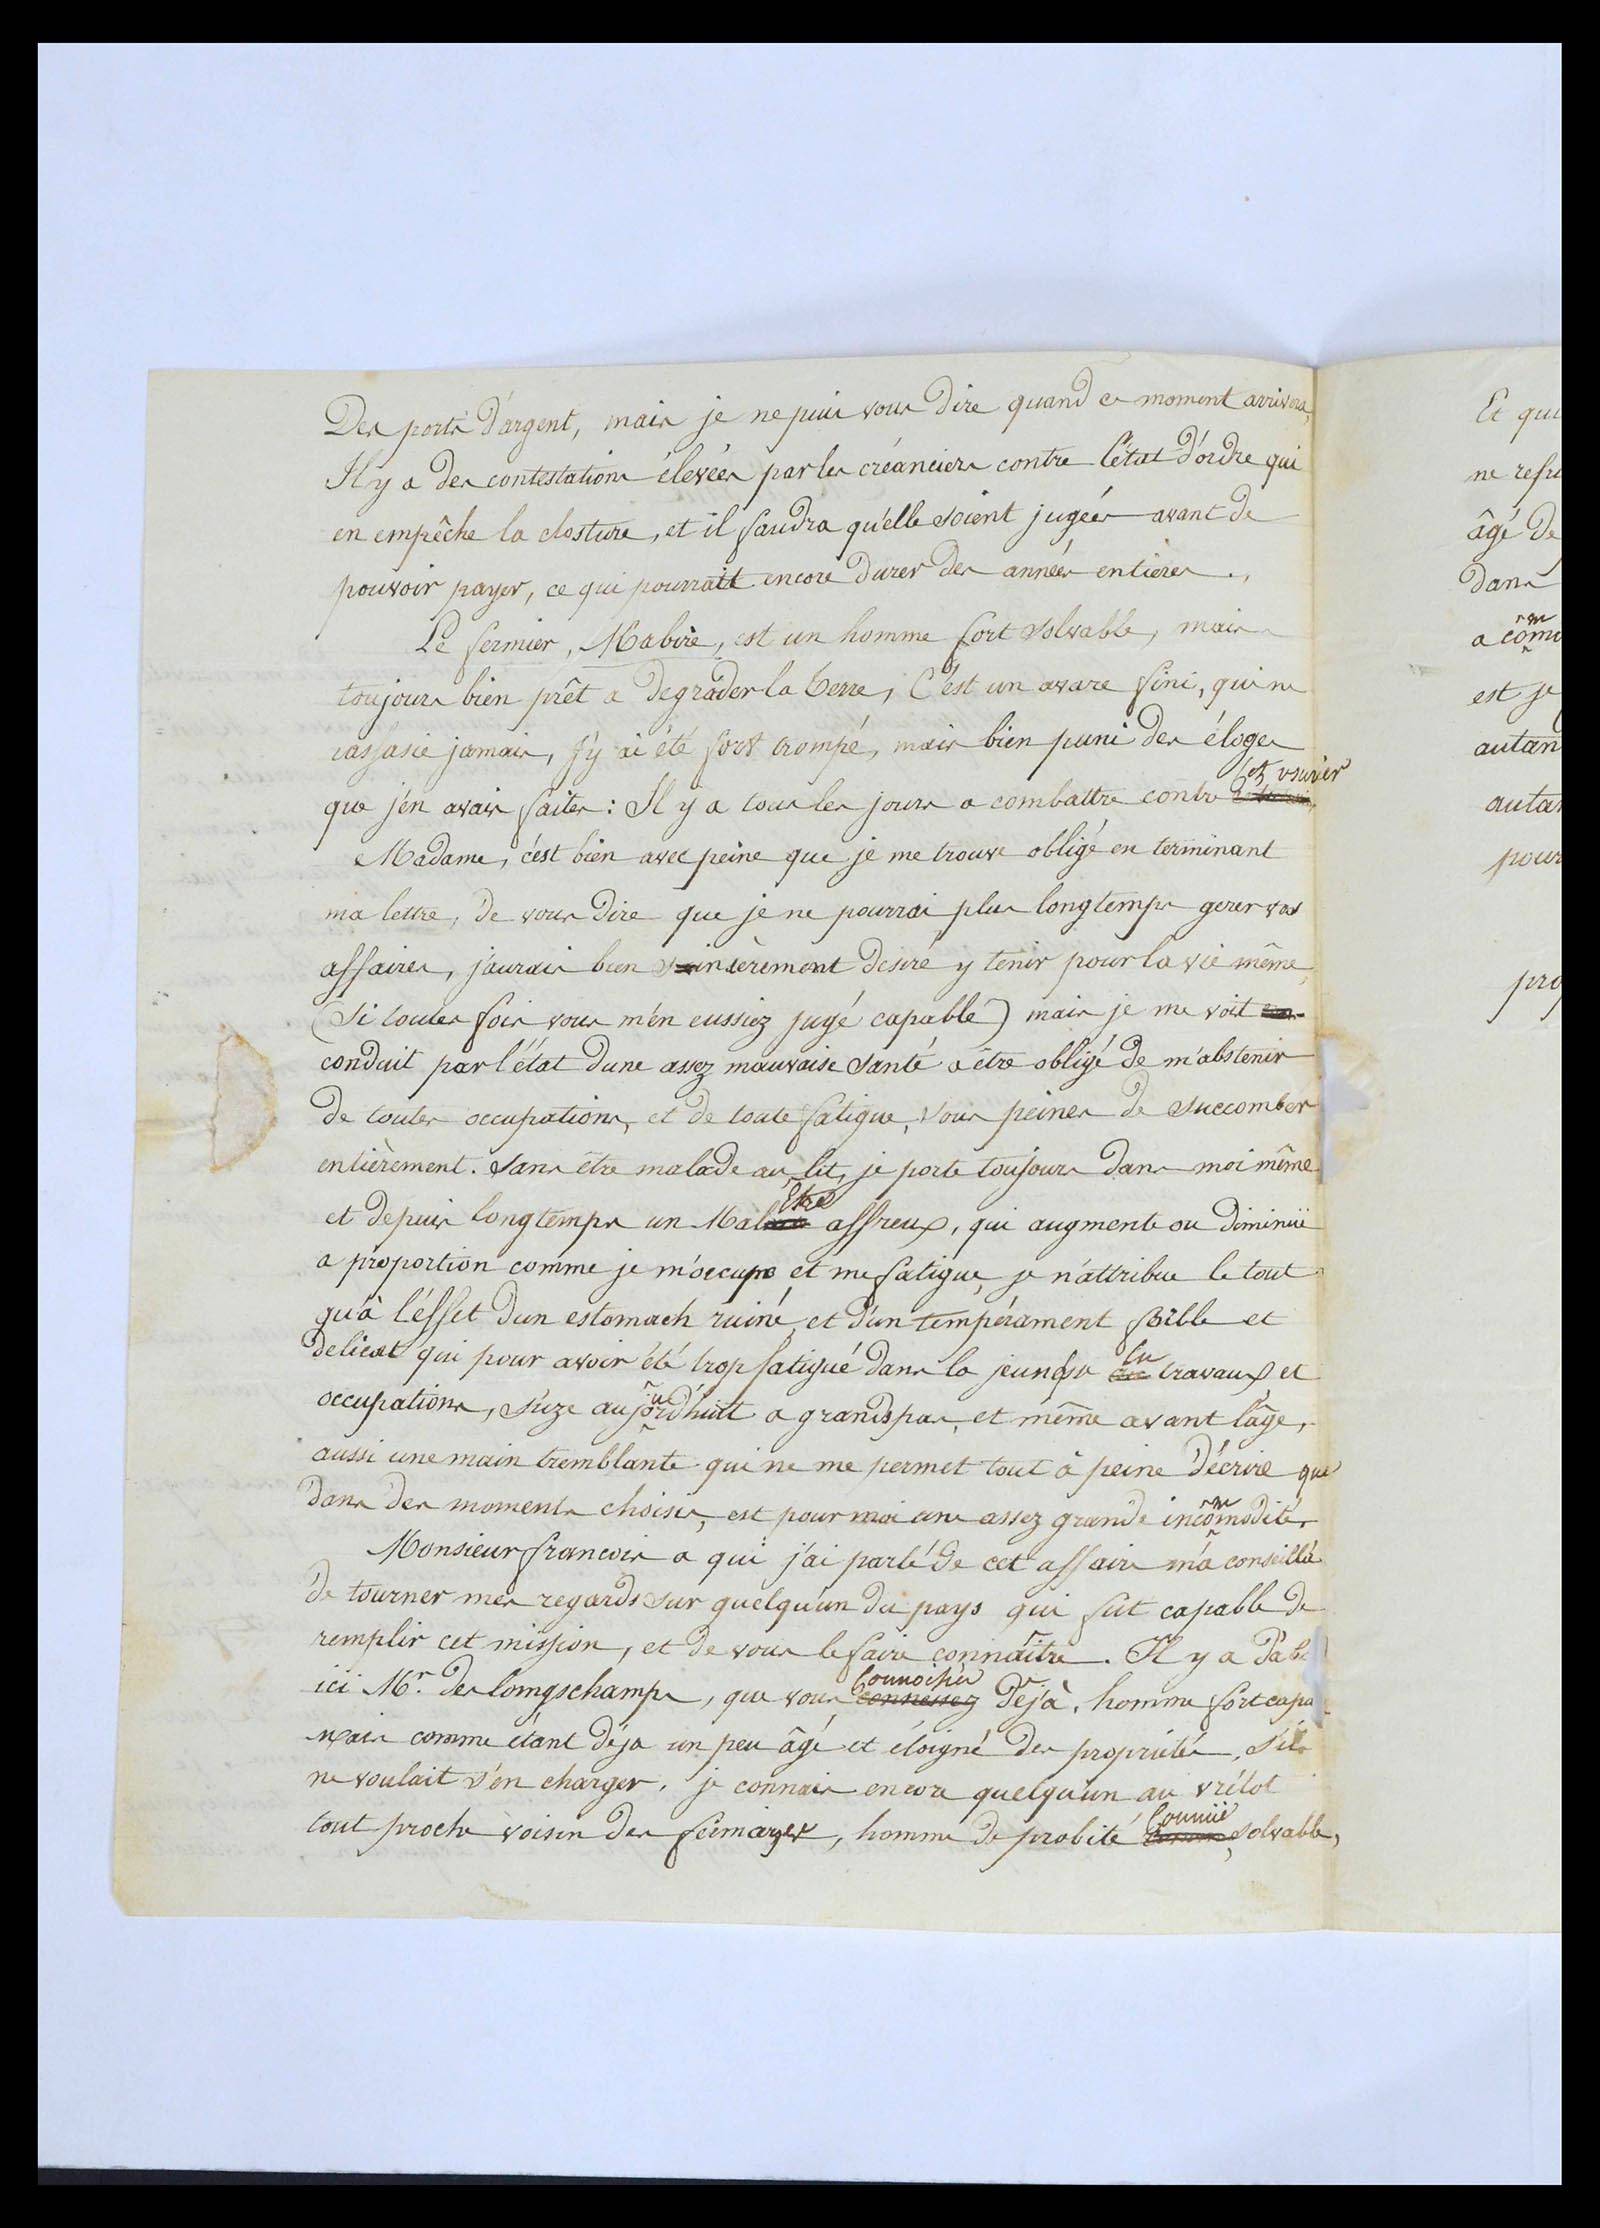 Des ports d'argent, mais je ne puis vous dire quand ce moment arrivera,
Il y a des contestations élevées par les créanciers contre l'état d'ordre qui
en empêche la closture, et il faudra qu'elle soient jugées avant de
pouvoir payer, ce qui pourrait encore durer des années entières.
Le fermier, Mabire, est un homme fort solvable, mais
toujours bien prêt a degrader la terre, C'est un avare fini, qui ne
rassasie jamais, j'y ai été fort trompé, mais bien puni des éloges
que j'en avais faites: Il y a tous les jours a combattre contre cet usurier
Madame, c'est bien avec peine que je me trouve obligé en terminant
ma lettre, de vous dire que je ne pourrai plus longtemps gerer vos
affaires, j'aurais bien sinsèrement desiré y tenir pour la vie même,
(Si toutes fois vous m'en eussiez jugé capable) mais je me voit
conduit par l'état dune assez mauvaise santé a être obligé de m'abstenir
de toutes occupations, et de toute fatigue, sous peines de succomber
entièrement. sans être malade au lit, je porte toujours dans moi même
et depuis longtemps un Mal Etre affreux, qui augmente ou diminuë
a proportion comme je m'occupe et me fatigue, je n'attribue le tout
qu'à l'éffet d'un estomach ruiné, et d'un tempérament foible et
delicat qui pour avoir été trop fatigué dans la jeunesse en travaux et
occupations, s'uze aujourd'huit a grands pas, et même avant l'âge,
aussi une main tremblante qui ne me permet tout à peine d'écrire que
dans des moments choisis, est pour moi une assez grande incômmodité.
Monsieur francois a qui j'ai parlé de cet affaire m'a conseillé
de tourner mes regards sur quelqu'un du pays qui fût capable de
remplir cet mission, et de vous le faire connaître. Il y a d'ab
ici Mr. deslomgschamps, que vous connoissez déjà, homme fort capa
mais comme étant déja un peu âgé et éloigné des propriétés, s'il
ne voulait s'en charger, je connais encore quelqu'un au vrétot
tout proche voisin des feimazes, homme de probité Connuë, solvable,
Et qui
ne refu
âgé de
dans
a comm
est je
autan
autan
pour
prop